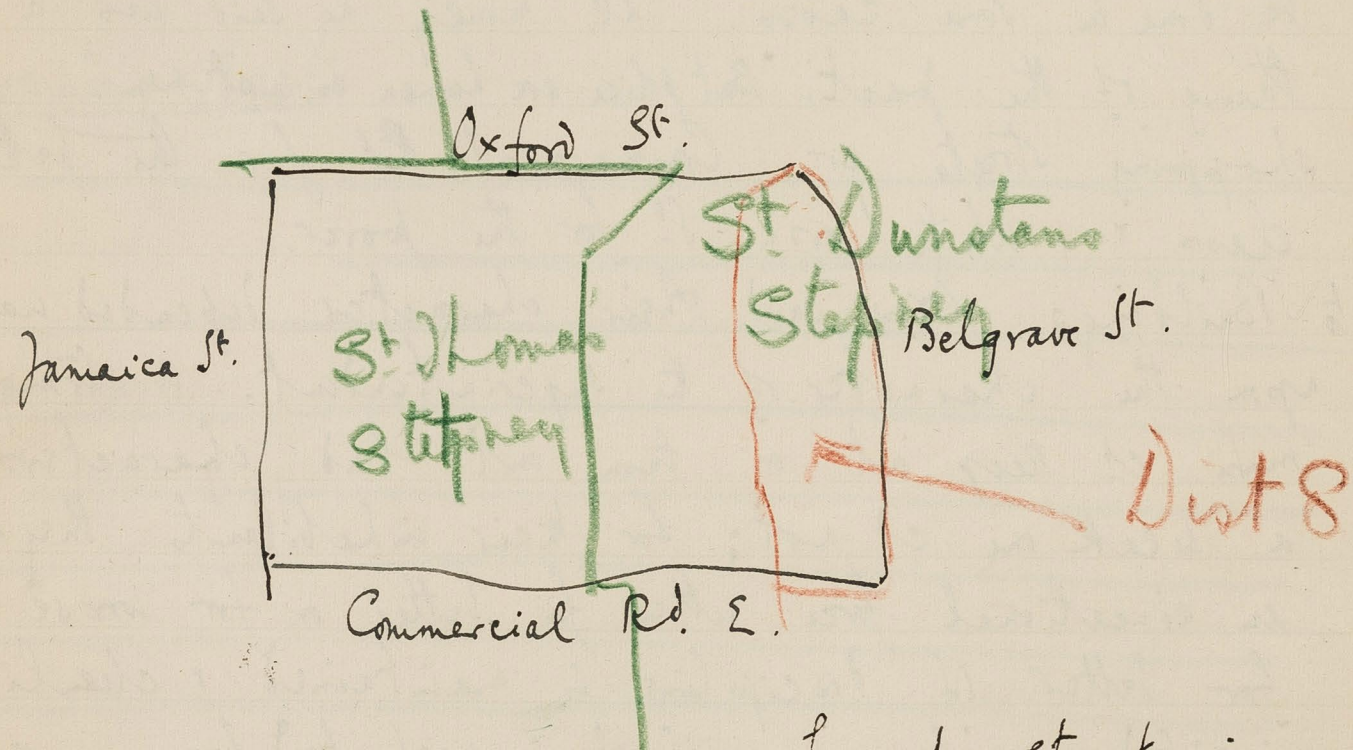 Oxford St.
St. Dunstans
Stepney
Jamaica St.
St Thomas
Stepney
Belgrave St.
Dist 8
Commercial Rd. E.